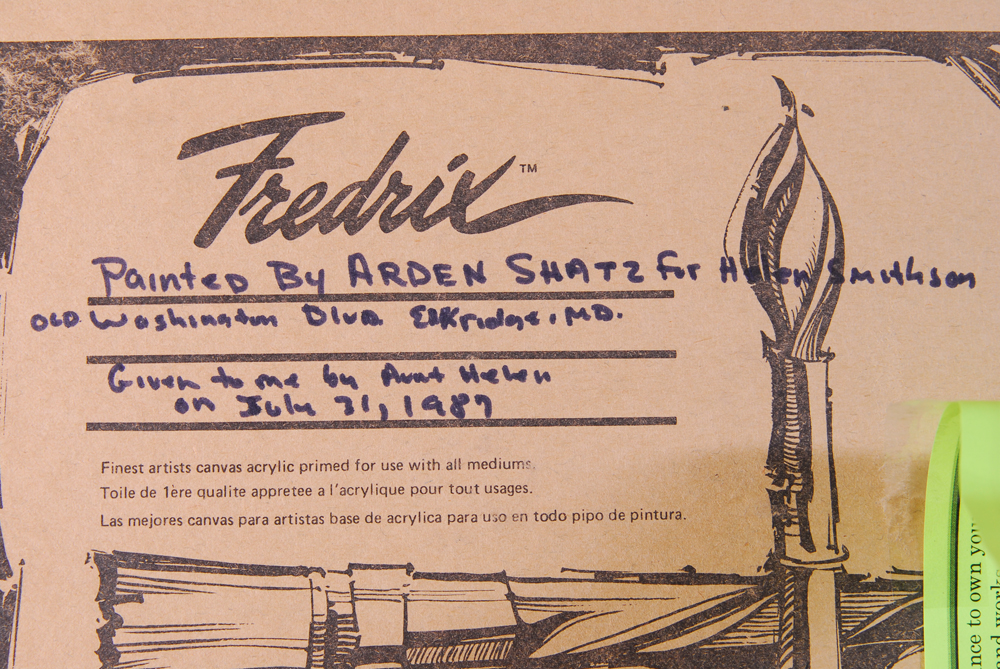 Fredrix™
Painted By ARDEN SHATZ for Helen Smithson
OLD Washington Blvd. Elkridge, MD.
Given to me by Aunt Helen
on July 31, 1987
Finest artists canvas acrylic primed for use with all mediums.
Toile de 1ère qualite appretee a l'acrylique pour tout usages.
Las mejores canvas para artistas base de acrylica para uso en todo pipo de pintura.
nce to own you